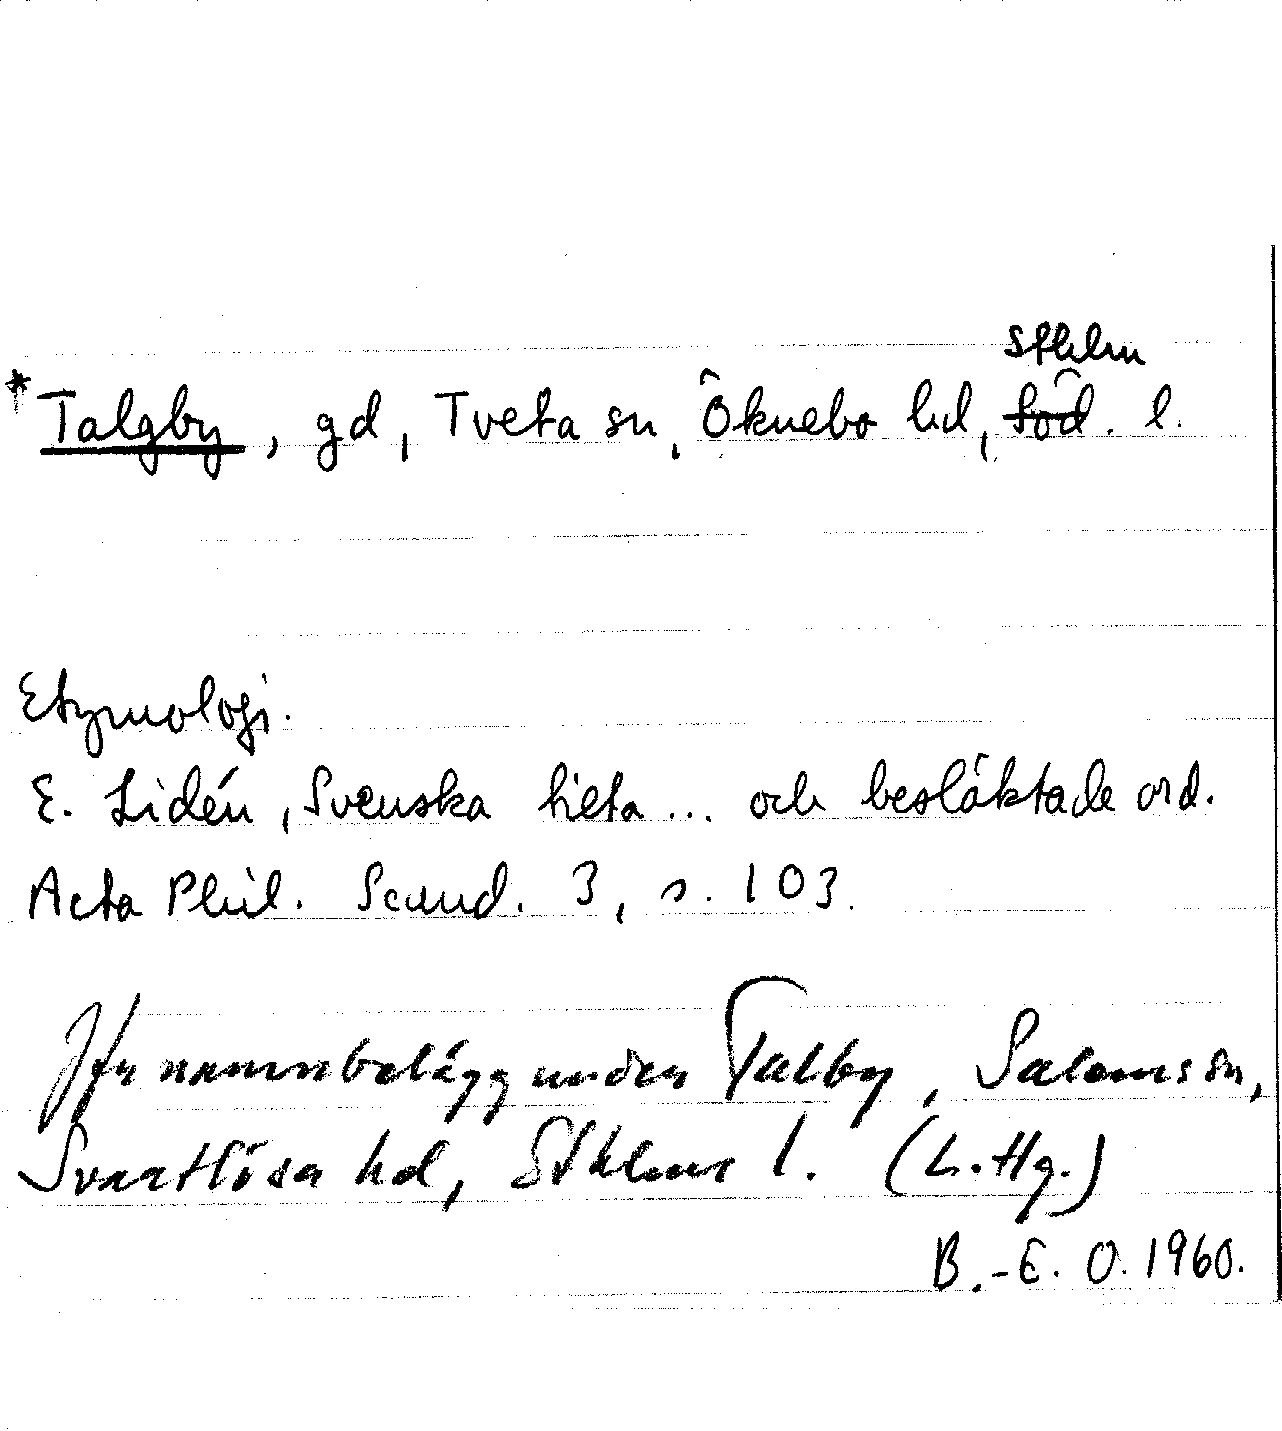 Sthlm
*Talgby, gd, Tveta sn, Öknebo hd, Söd. l.
Etymologi.
E. Lidén, Svenska hieta... och besläktade ord.
Acta Phil. Scand. 3, s. 103.
Jfr namnbelägg under Talby, Salems sn,
Svartlösa hd, Sthlms l. (L. Hg.)
B.-E. O. 1960.